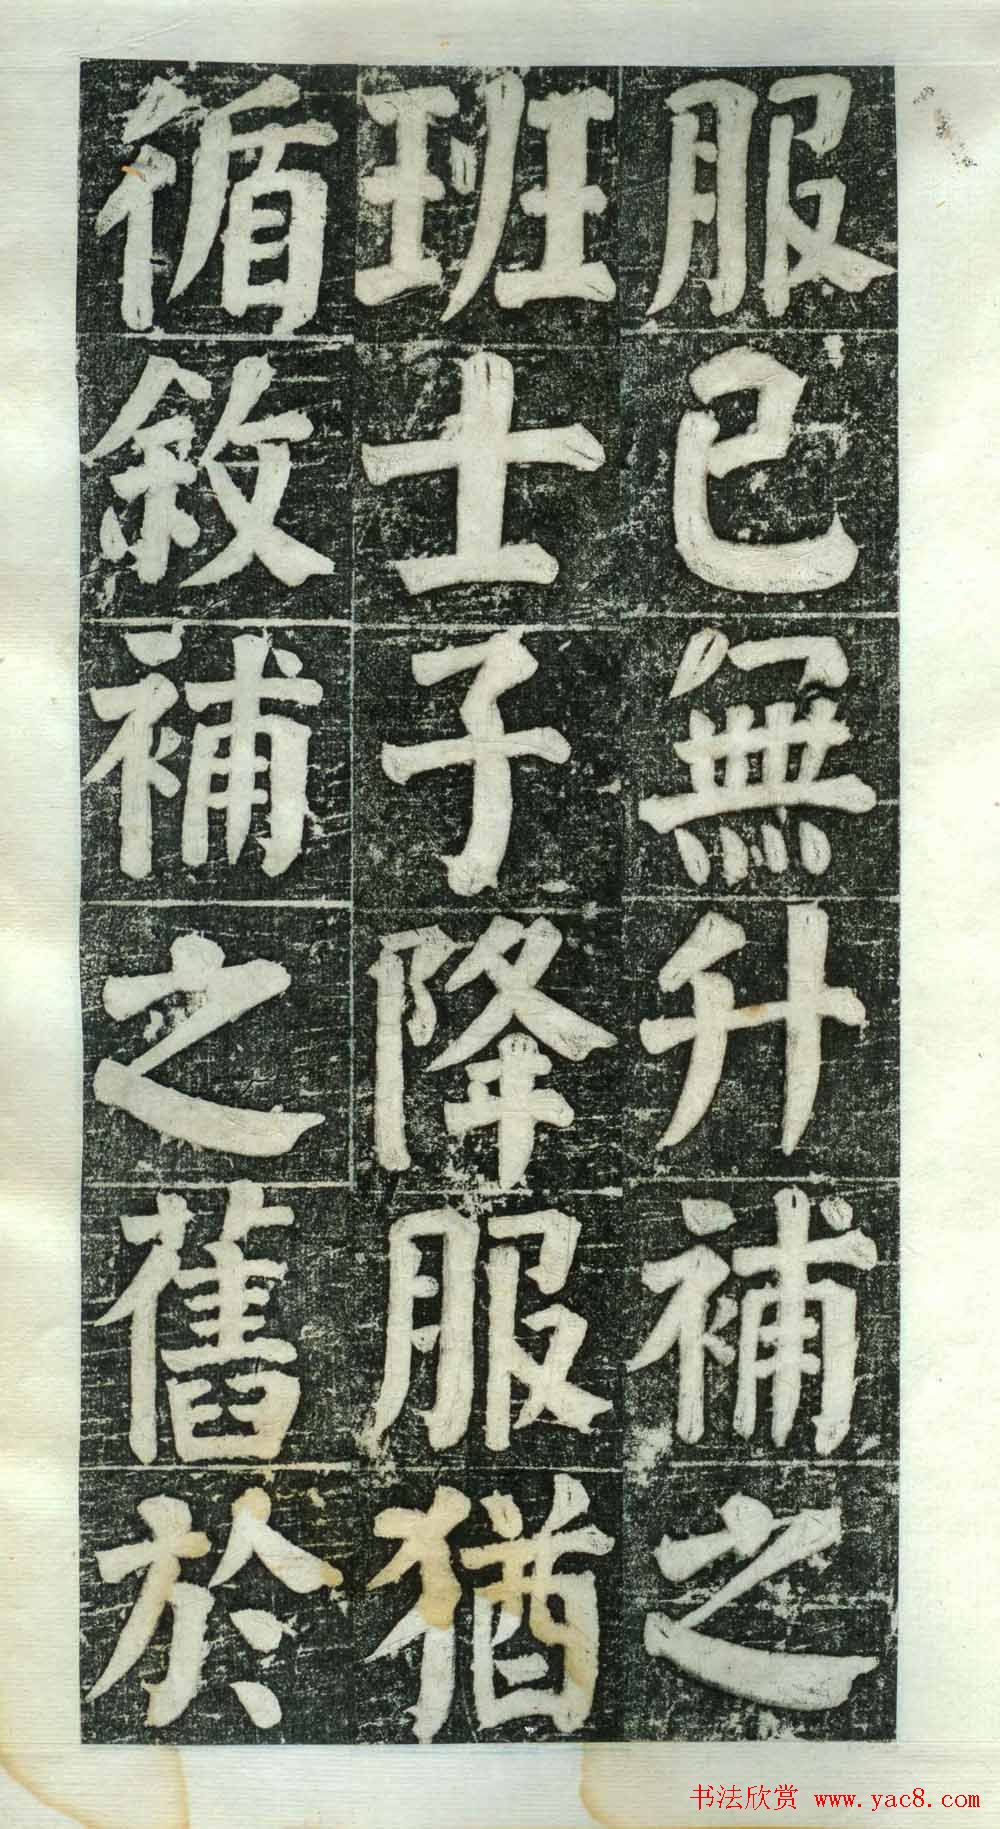 服已無升補之
班士子降服猶
循敘補之舊於
书法欣赏 www.yac8.com